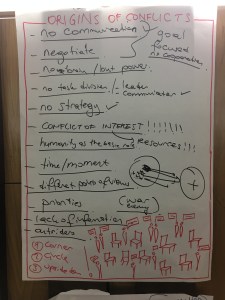 ORIGINS OF CONFLICTS
- no communication ✓
goal
- negotiate
focused
no cooperation
- no brain / but power.
- no task division / - leader
communicator ✓
- no strategy ✓
- CONFLICT OF INTEREST !!!!!!!
- humanity as the
RESOURCES!!!
- time/moment
- different points of views
- priorities
(war
- lack of information
outsiders
① corner
② Circle
③